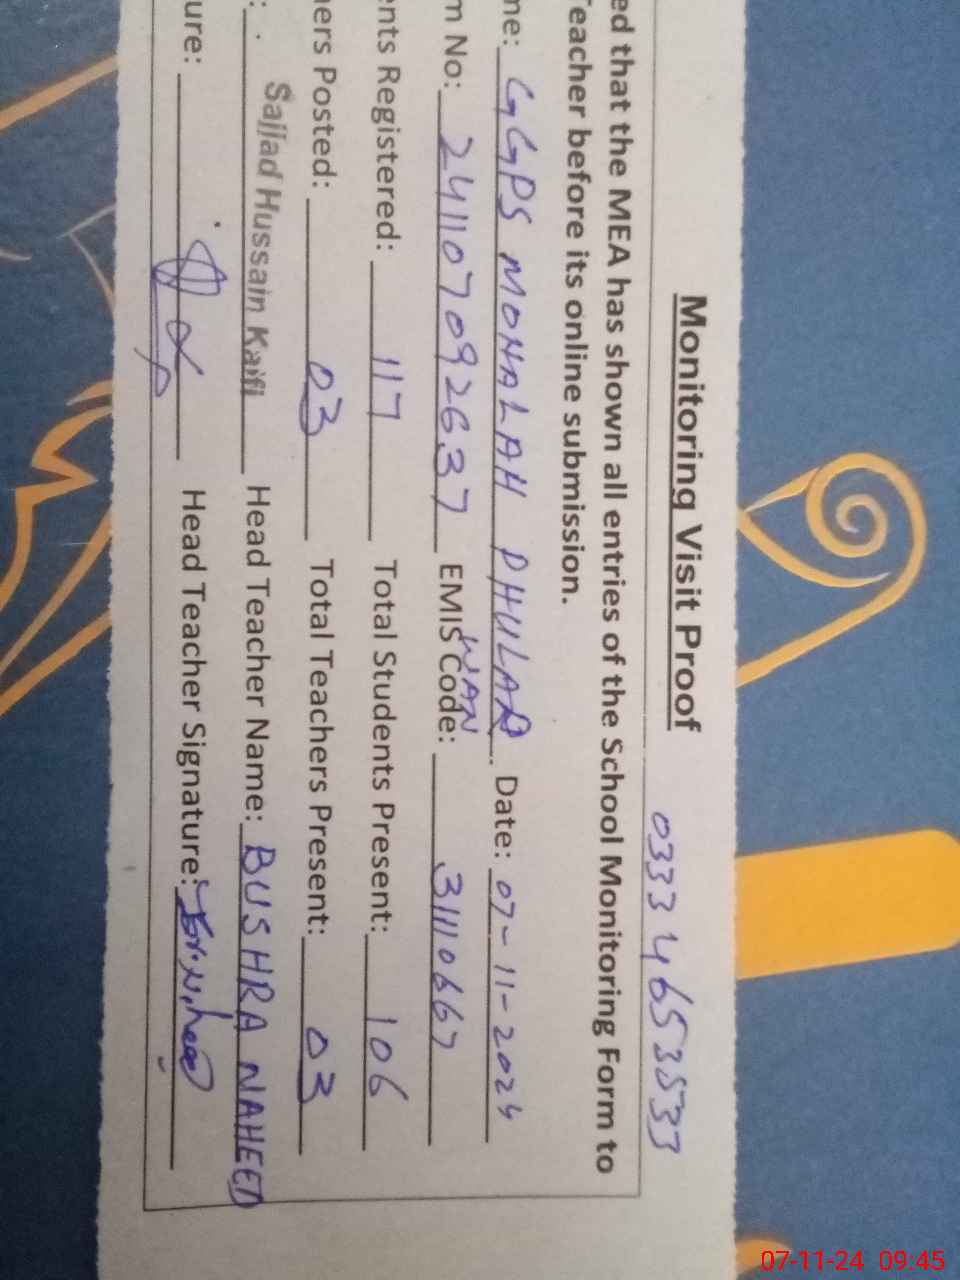 Monitoring Visit Proof
0333 4653533
ed that the MEA has shown all entries of the School Monitoring Form to
Teacher before its online submission.
me: GGPS MONALAH PHULAR Date: 07-11-2024
WAN
m No: 241107092637 EMIS Code: 31110667
ents Registered: 117 Total Students Present: 106
hers Posted: 03 Total Teachers Present: 03
: Sajjad Hussain Kaifi Head Teacher Name: BUSHRA NAHEED
ure: Head Teacher Signature:
07-11-24 09:45